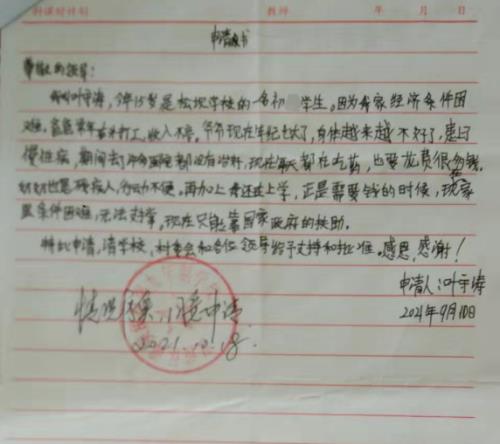 科课时计划 教师 年 月 日
申请书
尊敬的领导:
我叫叶宇涛,今年15岁是松坝学校的一名初 学生。因为我家经济条件困
难。爸爸常年在外打工,收入不高。爷爷现在年纪也大了,身体越来越不好了,患得
慢性病,期间去了 医院都没有治好,现在每天都在吃药,也要花费很多钱。
奶奶也是残疾人,行动不便。再加上我还在上学,正是需要钱的时候,现家
里条件困难,无法支撑,现在只能靠国家政府的扶助。
特此申请,请学校、村委会和各位领导给予支持和批准。感恩,感谢!
申请人:叶宇涛
2021年9月10日
情况属实,同意申请
2021.10.18.